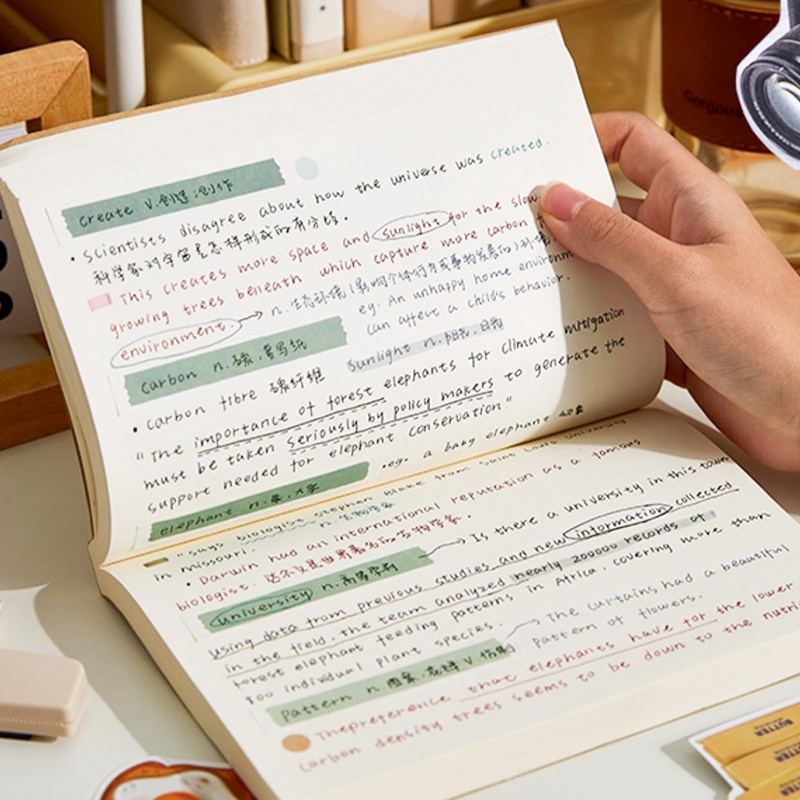 create v.创造;创作
• Scientists disagree about how the universe was created.
科学家对宇宙是怎样形成的有分歧.
This creates more space and sunlight for the slow
growing trees beneath which capture more carbon
environment. → n.生态环境(影响个体行为或事物发展的)环境
eg. An unhappy home environm
can affect a child's behavior.
carbon n.碳,复写纸
sunlight n.阳光,日光
• carbon fibre 碳纤维
"The importance of forest elephants for climate mitigation
must be taken seriously by policy makers to generate the
support needed for elephant conservation."
elephant n.象,大象
eg. a baby elephant
"says biologist Stephen Blake from Saint Louis University
in Missouri. n.生物学家
• Darwin had an international reputation as a famous
biologist. 达尔文是世界著名的生物学家.
university n.高等学府
Is there a university in this town
Using data from previous studies and new information collected
in the field, the team analyzed nearly 200000 records of
forest elephant feeding patterns in Africa, covering more than
individual plant species.
The curtains had a beautiful
pattern of flowers.
pattern n.图案
The preference that elephants have for the lower
carbon density trees seems to be down to the nutri
Gorgeou
BUTTER
BUTTER